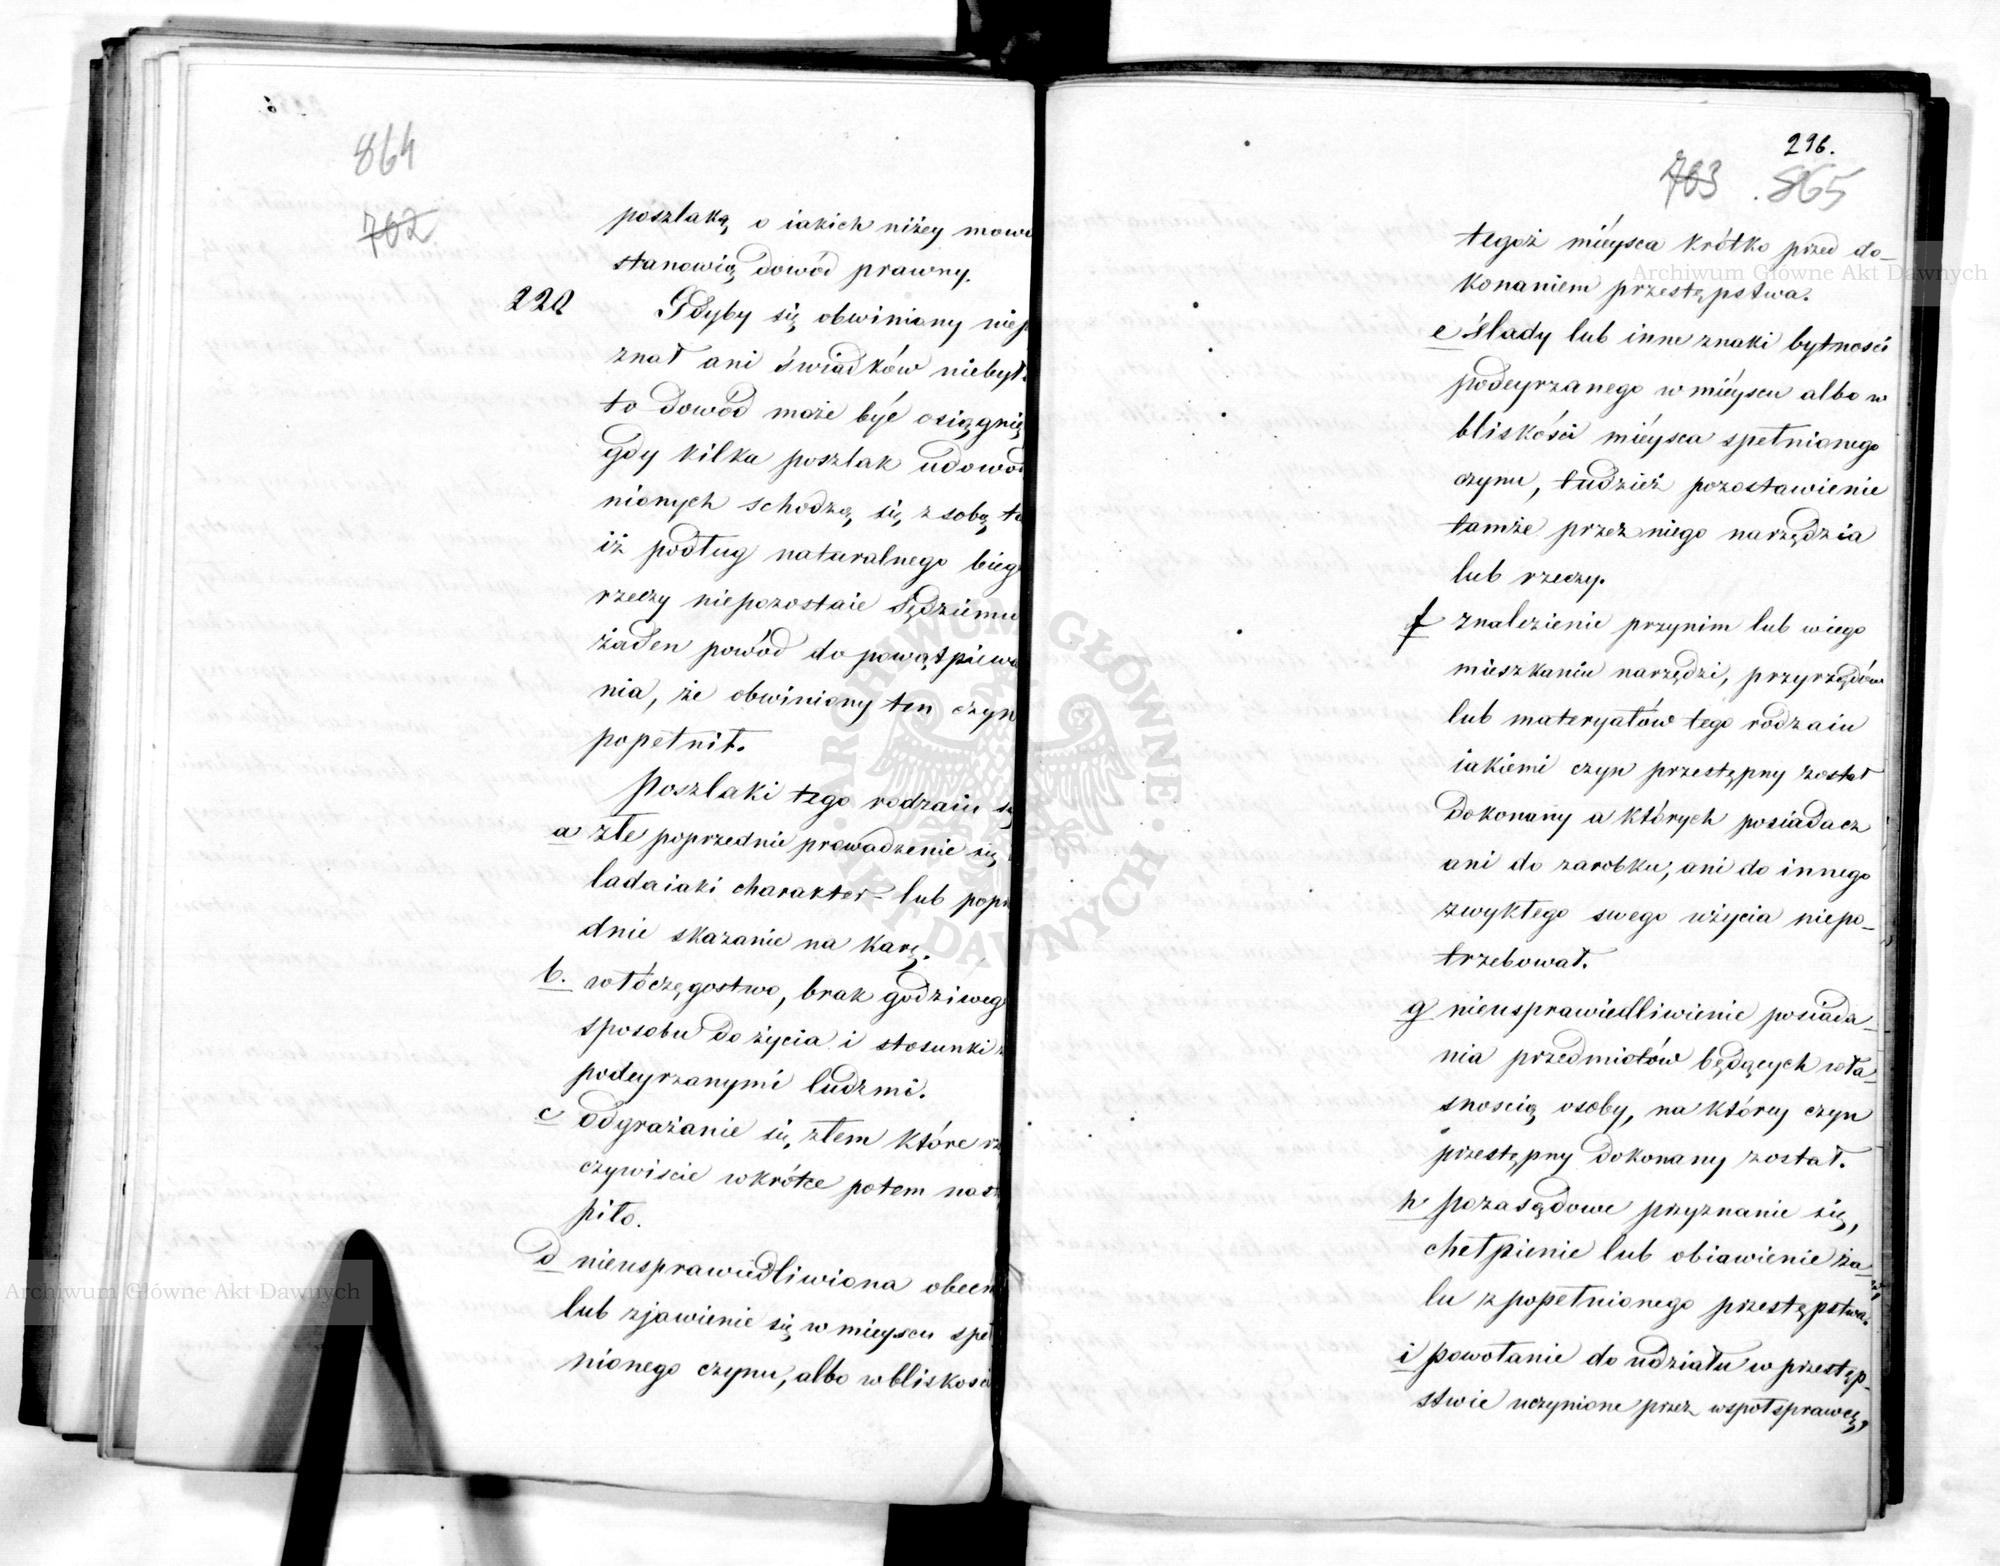 864
702
poszlaką, o iakich niżey mowa
stanowią dowód prawny.
220
Gdyby się obwiniony niep
znał ani świadków niebył
to dowód może być osiągnię
gdy kilka poszlak udowod
nionych schodzą się z sobą ta
iż podług naturalnego bieg
rzeczy niepozostaie Sędziemu
żaden powód do powątpiewa
nia, że obwiniony ten czyn
popełnił.
Poszlaki tego rodzaiu są
a złe poprzednie prowadzenie się,
ladaiaki charakter lub popr
dnie skazanie na karę.
b. włóczęgostwo, brak godziweg
sposobu do życia i stosunki z
podeyrzanymi ludźmi.
c odgrażanie się złem które rz
czywiście wkrótce potem nastą
piło.
d nieusprawiedliwiona obecn
lub zjawienie się w mieyscu speł
nionego czynu, albo w bliskości
296.
703 865
tegoż mieysca krótko przed do-
konaniem przestępstwa.
e Ślady lub inne znaki bytności
podeyrzanego w mieyscu albo w
bliskości mieysca spełnionego
czynu, tudzież pozostawienie
tamże przez niego narzędzia
lub rzeczy.
f znalezienie przynim lub wiego
mieszkaniu narzędzi, przyrządów
lub materyałów tego rodzaiu
iakiemi czyn przestępny został
dokonany a których posiadacz
ani do zarobku, ani do innego
zwykłego swego użycia niepo-
trzebował.
g nieusprawiedliwienie posiada-
nia przedmiotów będących wła-
snością osoby, na którey czyn
przestępny dokonany został.
h pozasądowe przyznanie się,
chełpienie lub obiawienie ża-
lu z popełnionego przestępstwa.
i powołanie do udziału w przestęp-
stwie uczynione przez współsprawcę,
Archiwum Główne Akt Dawnych
Archiwum Główne Akt Dawnych
ARCHIWUM GŁÓWNE AKT DAWNYCH